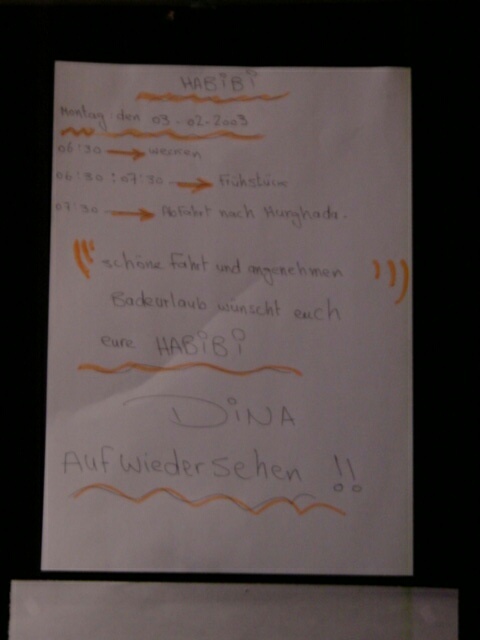 HABIBI
Montag den 03-02-2003
06:30 → wecken
06:30 : 07:30 → Frühstück
07:30 → Abfahrt nach Hurghada.
schöne Fahrt und angenehmen
Badeurlaub wünscht euch
eure HABIBI
DINA
Auf Wiedersehen !!